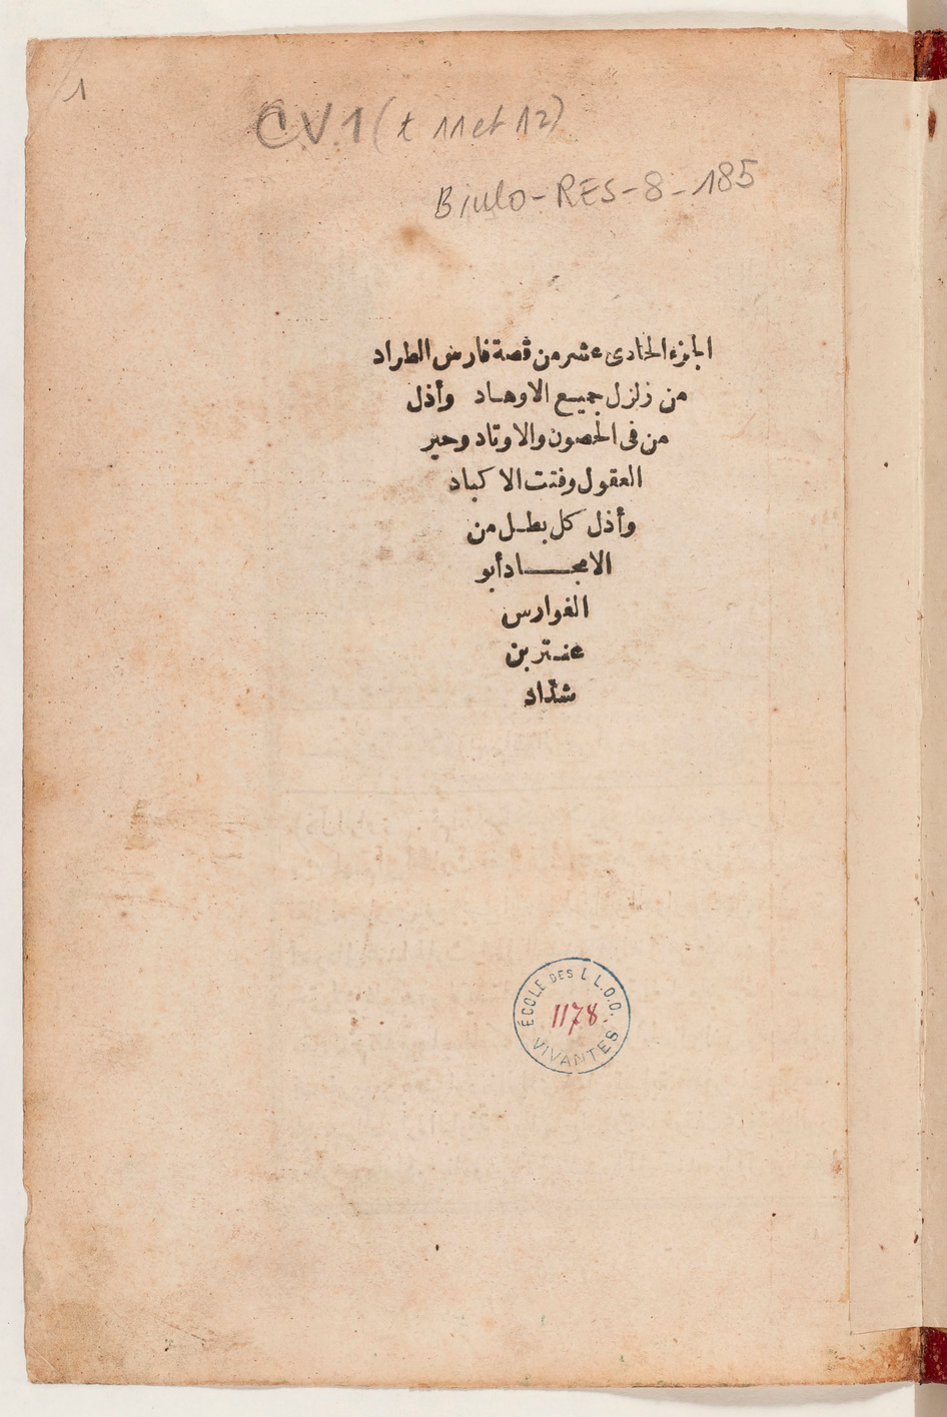 1
C.V.1 (t 11 et 12)
Biulo-RES-8-185
الجزء الحادى عشر من قصة فارس الطراد
من زلزل جميع الاوهاد وأذل
من فى الحصون والاوتاد وحير
العقول وفتت الاكباد
وأذل كل بطل من
الامجاد أبو
الفوارس
عنتر بن
شداد
ÉCOLE DES L.L.O.O.
1178
VIVANTES